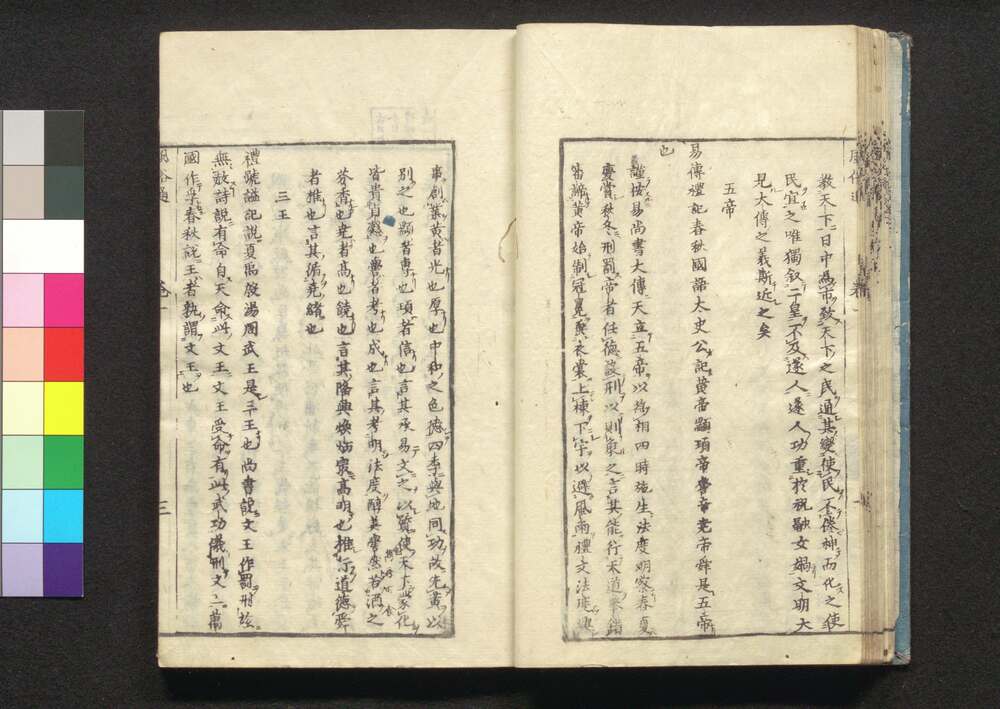 教天下日中為市致天下之民通其變使民不倦神而化之使
民宜之唯獨叙二皇不及遂人遂人功重於祝融女媧文明大
見大傳之義斯近之矣
五帝
易傳禮記春秋國語太史公記黄帝顓頊帝嚳帝堯帝舜是五帝
也
謹按易尚書大傳天立五帝以為相四時施生法度明察春夏
慶賞秋冬刑罰帝者任德設刑以則象之言其能行天道舉錯
審諦黄帝始制冠冕垂衣裳上棟下宇以避風雨禮文法度興
事創業黄者光也厚也中和之色德四季與地同功故先黄以
別之也顓者專也頊者信也言其承易文之以質使天下蒙化
皆貴貞慤也嚳者考也成也言其考明法度醇美嚳然若酒之
芬香也堯者高也饒也言其隆興煥炳最高明也推行道德舜
者推也言其循堯緒也
三王
禮號謚記說夏禹殷湯周武王是三王也尚書說文王作罰刑茲
無赦詩說有命自天命此文王文王受命有此武功儀刑文王萬
國作孚春秋說王者孰謂文王也
三